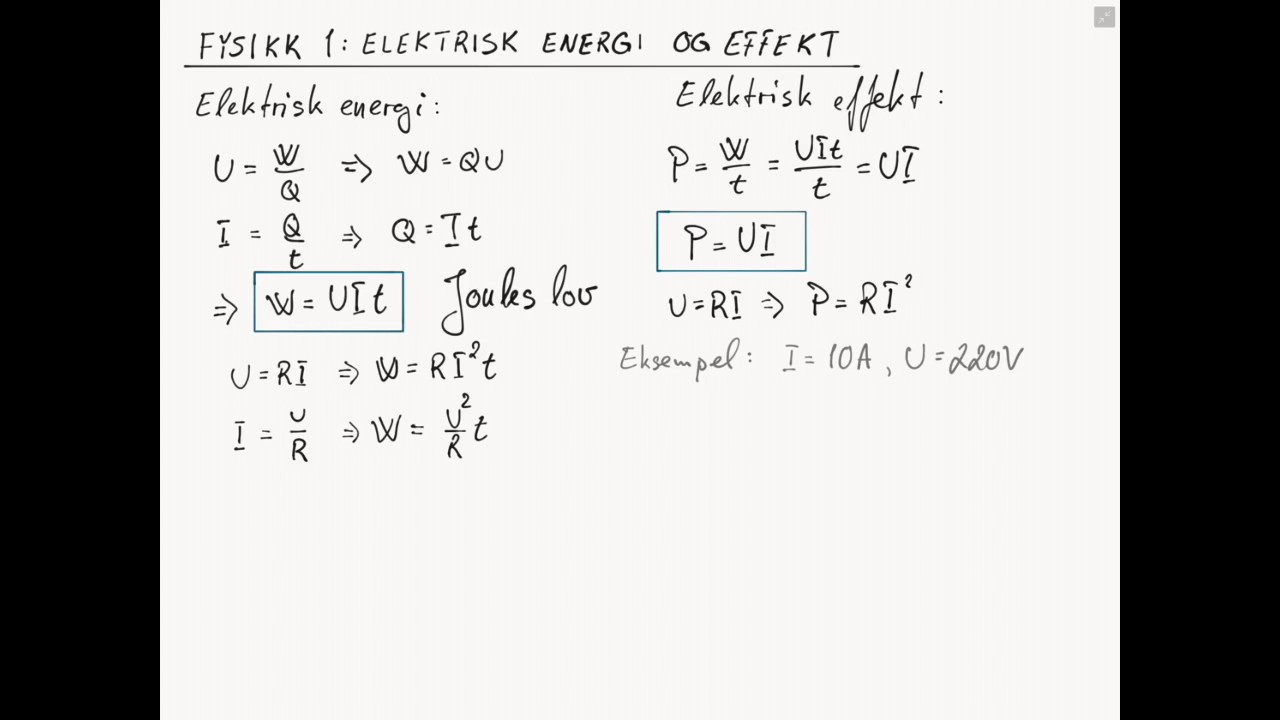 FYSIKK 1: ELEKTRISK ENERGI OG EFFEKT
Elektrisk energi:
U = W/Q ⇒ W = QU
I = Q/t ⇒ Q = It
⇒ W = UIt Joules lov
U = RI ⇒ W = RI²t
I = U/R ⇒ W = U²/R t
Elektrisk effekt:
P = W/t = UIt/t = UI
P = UI
U = RI ⇒ P = RI²
Eksempel: I = 10A, U = 220V